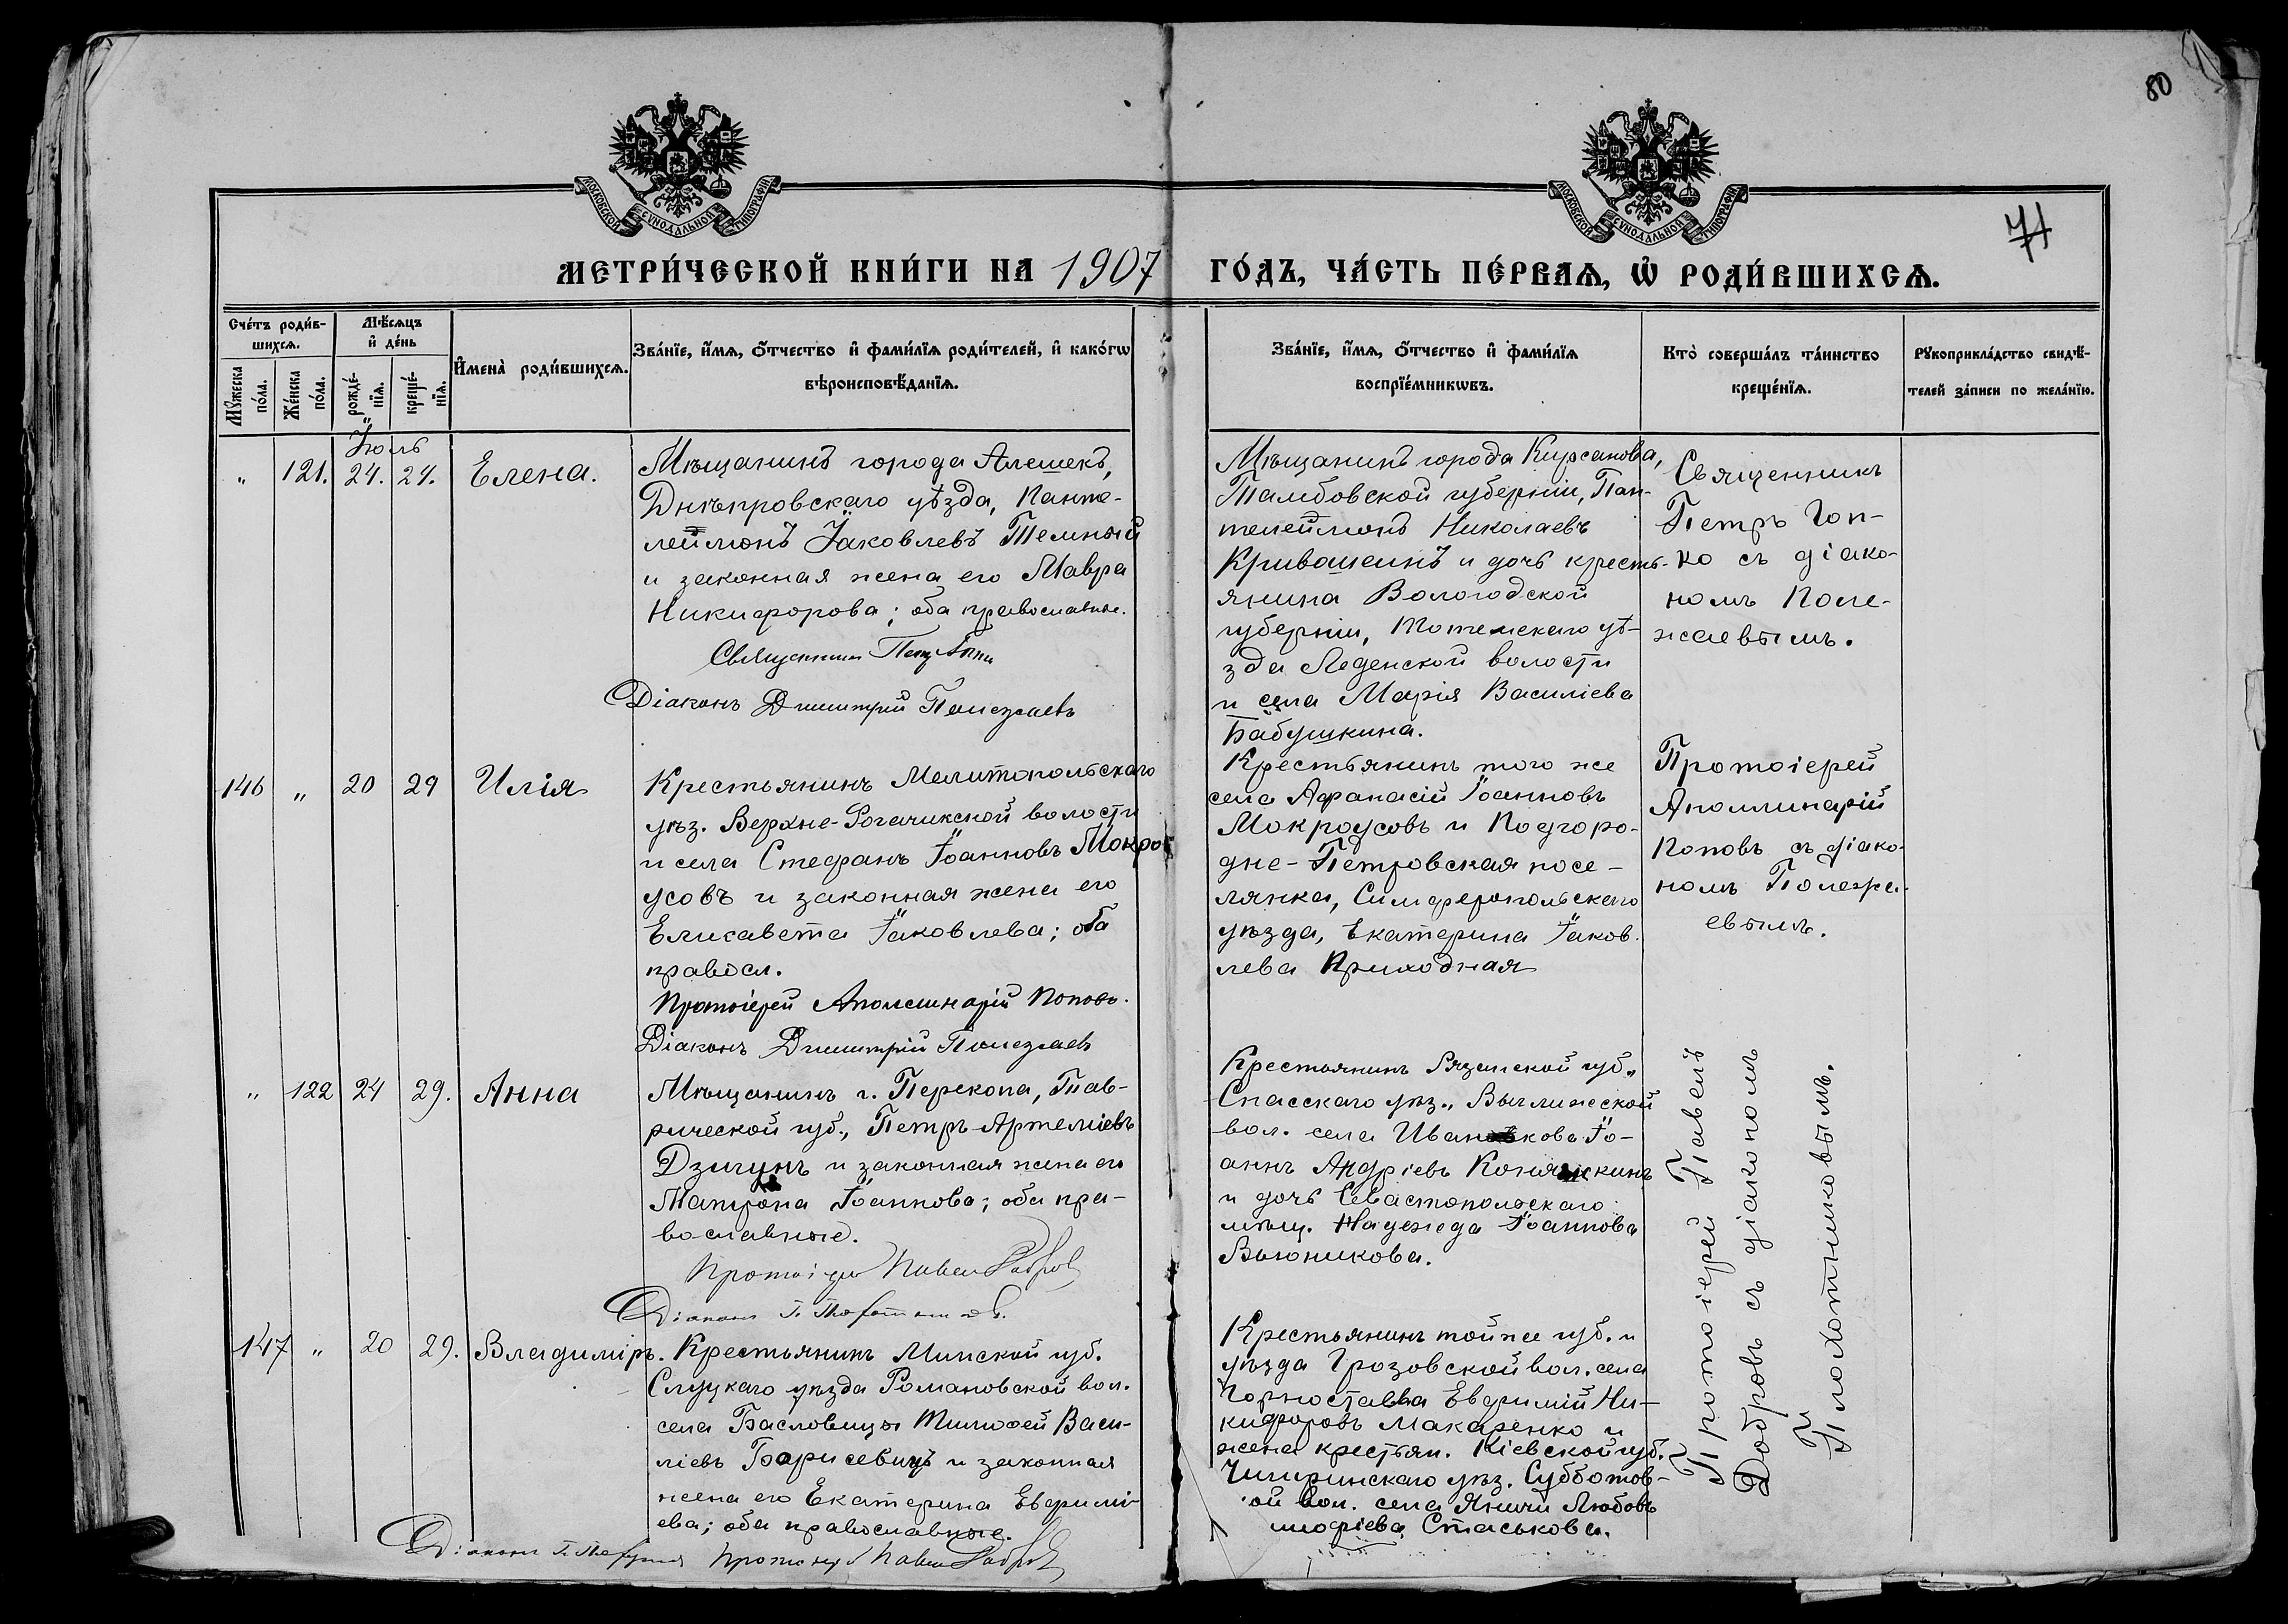 80
МОСКОВСКОЙ СѴНОДАЛЬНОЙ ТИПОГРАФІИ
МОСКОВСКОЙ СѴНОДАЛЬНОЙ ТИПОГРАФІИ
71
МЕТРИ́ЧЕСКОЙ КНИ́ГИ НА 1907 ГО́ДЪ, ЧА́СТЬ ПЕ́РВАѦ, Ѡ҆ РОДИ́ВШИХСѦ.
Сче́тъ роди́в-
шихсѧ.
Мѣ́сѧцъ
и҆ де́нь
Мꙋ́жеска
по́ла.
Же́нска
по́ла.
рожде́-
нїѧ.
креще́-
нїѧ.
И҆мена̀ роди́вшихсѧ.
Зва́нїе, и҆́мѧ, ѻ҆́тчество и҆ фами́лїѧ роди́телей, и҆ како́гѡ
вѣроисповѣ́данїѧ.
Зва́нїе, и҆́мѧ, ѻ҆́тчество и҆ фами́лїѧ
воспрїе́мникѡвъ.
Кто̀ соверша́лъ та́инство
креще́нїѧ.
Рꙋкоприкла́дство свидѣ́-
телей за́писи по жела́нїю.
Іюль
" 121. 24. 24. Елена.
Мѣщанинъ города Алешекъ,
Днѣпровскаго уѣзда, Панте-
леймонъ Іаковлевъ Темный
и законная жена его Мавра
Никифорова; оба православные.
Священникъ Петръ
Діаконъ Димитрий Полежаевъ
Мѣщанинъ города Кирсанова,
Тамбовской губерніи, Пан-
телеймонъ Николаевъ
Кривошеинъ и дочь кресть-
янина Вологодской
губерніи, Тотемскаго уѣ-
зда Леденской волости
и села Марія Василіева
Бабушкина.
Священникъ
Петръ Гоп-
ко съ діако-
номъ Поле-
жаевымъ.
146 " 20 29 Илія
Крестьянинъ Мелитопольскаго
уѣз. Верхне-Рогачикской волости
и села Стефанъ Іоанновъ Мокро-
усовъ и законная жена его
Елисавета Іаковлева; оба
правосл.
Протоіерей Аполлинарій Поповъ.
Діаконъ Димитрій Полежаевъ
Крестьянинъ того же
села Афанасій Іоанновъ
Мокроусовъ и Подгоро-
дне-Петровская посе-
лянка, Симферопольскаго
уѣзда, Екатерина Іаков-
лева Приходная
Протоіерей
Аполлинарій
Поповъ съ діако-
номъ Полежа-
евымъ.
" 122 24 29. Анна
Мѣщанинъ г. Перекопа, Тав-
рической губ., Петръ Артеміевъ
Дзигунъ и законная жена его
Матрона Іоаннова; оба пра-
вославные.
Протоіерей Павелъ Добровъ
Діаконъ П. Плохотниковъ.
Крестьянинъ Рязанской губ.,
Спасскаго уѣз., Выглинеской
вол. села Иванкова Іо-
аннъ Андріевъ
и дочь Севастопольскаго
мѣщ. Надежда Іоаннова
Вьюникова.
147 " 20 29. Владиміръ.
Крестьянинъ Минской губ.
Слуцкаго уѣзда Романовской вол.
села Басловцы Тимофей Васи-
ліевъ Борисевичъ и законная
жена его Екатерина Ефимі-
ева; оба православные.
Діаконъ П. Протоіерей Павелъ Добровъ
Крестьянинъ той же губ. и
уѣзда Грозовской вол. села
Горностаева Евфимій Ни-
кифоровъ Макаренко и
жена крестьян. Кіевской губ.
Чигиринскаго уѣз. Субботов-
ой вол. села Яничи Любовь
Стаськова.
Протоіерей Павелъ
Добровъ съ діакономъ
П. Плохотниковымъ.